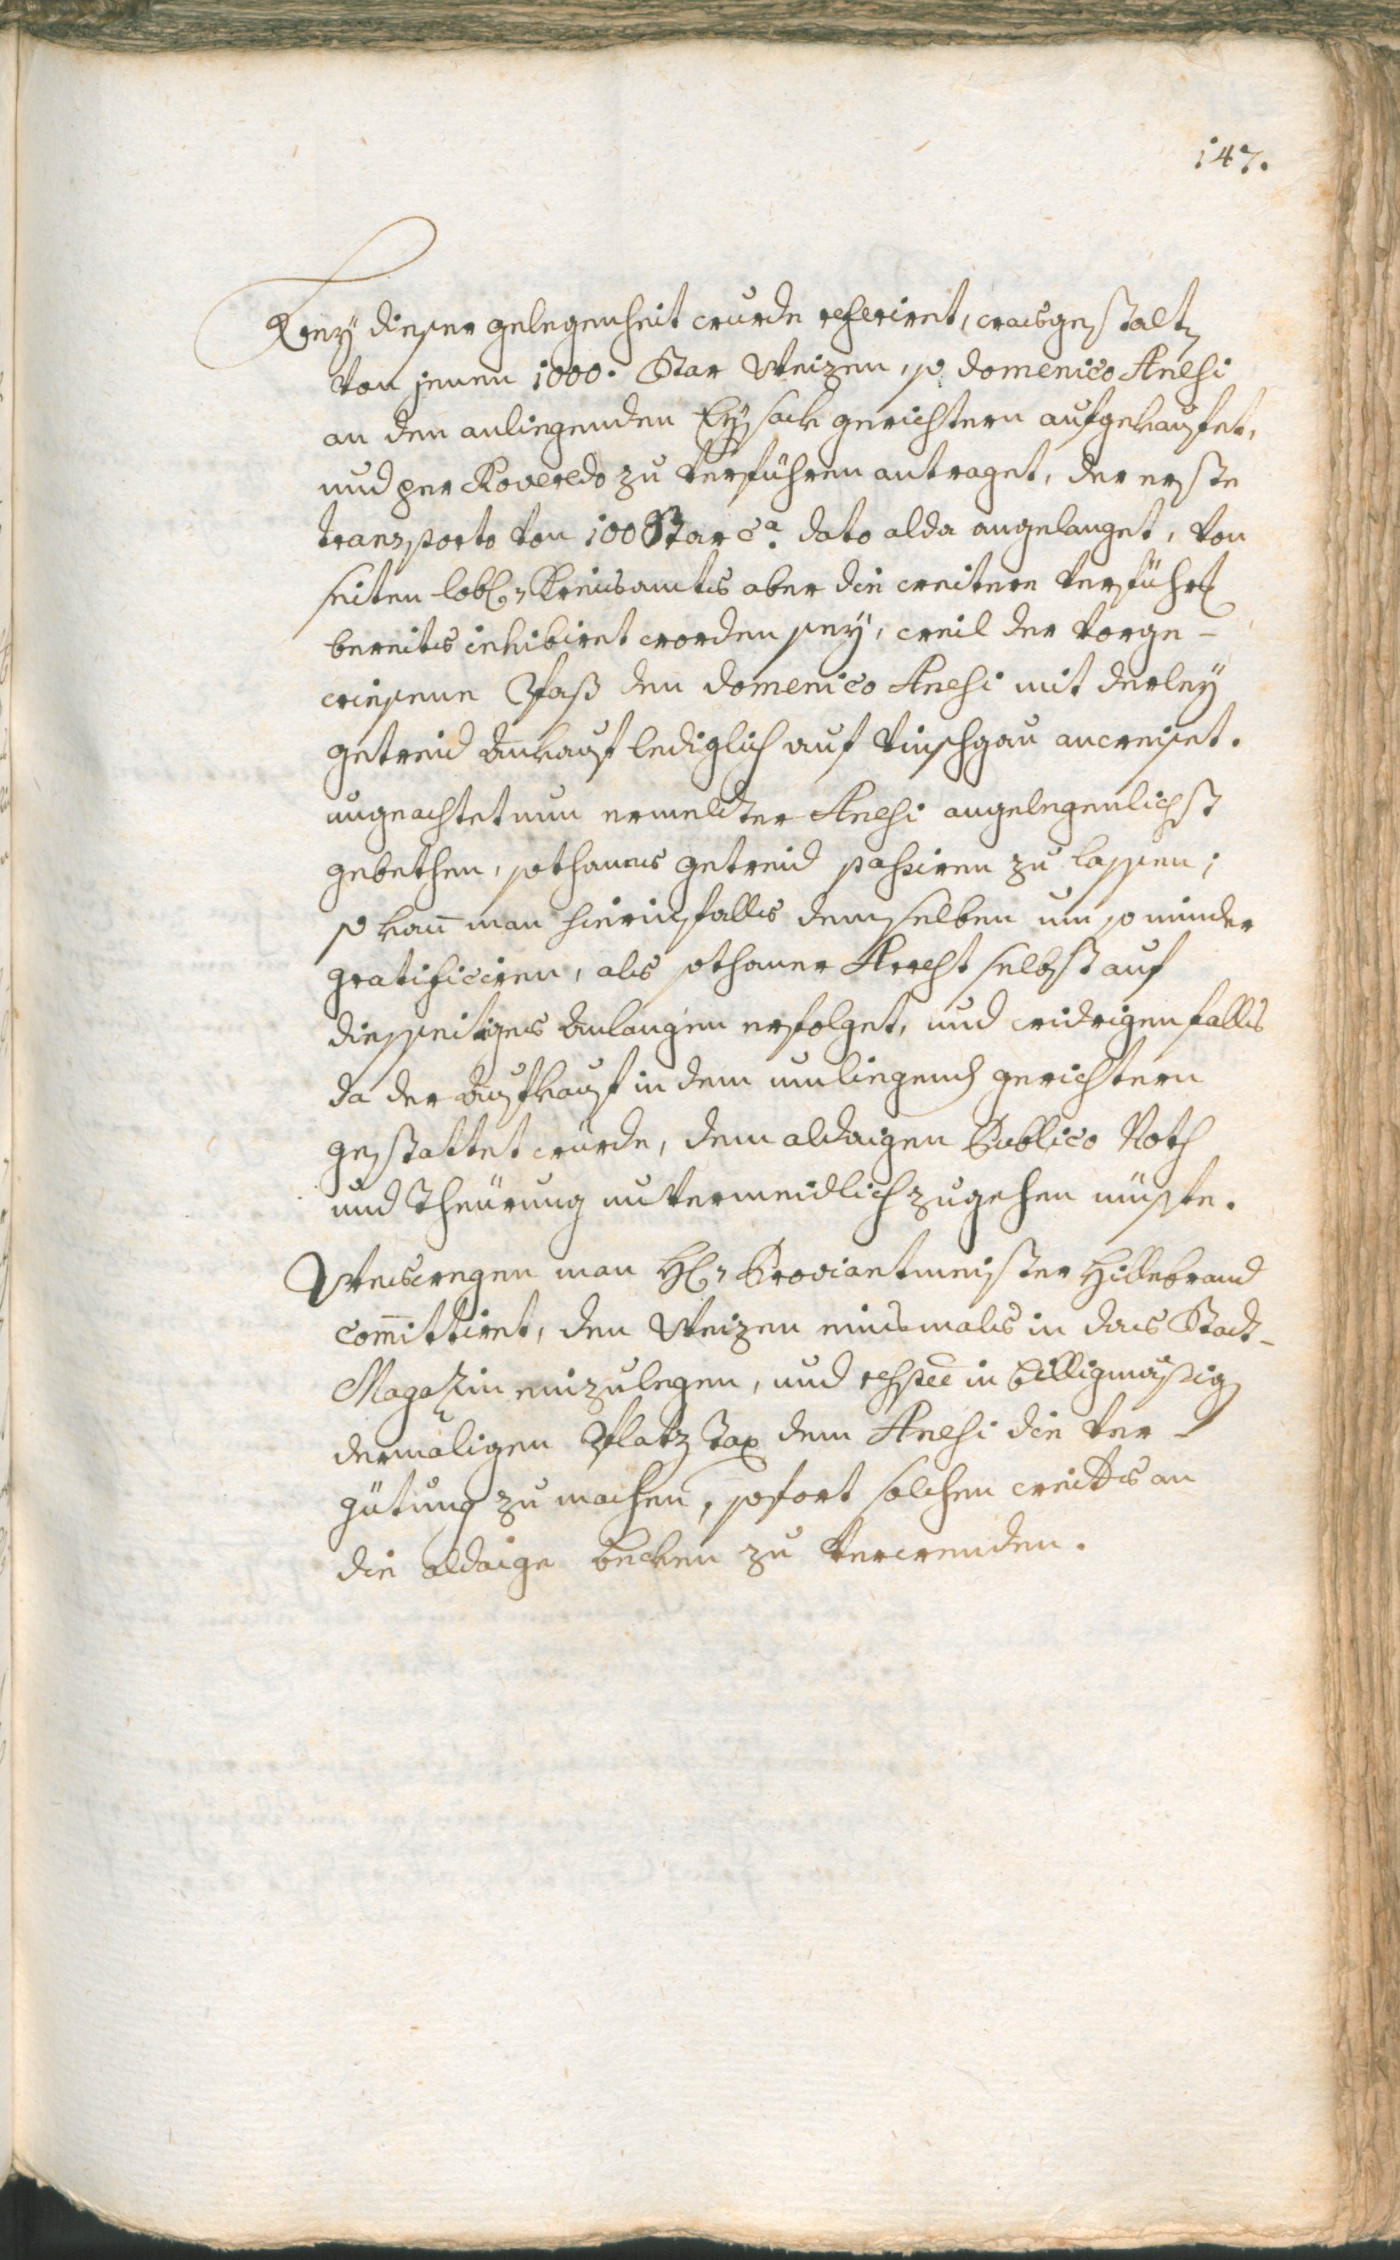 147.
Bey dieser gelegenheit wurde referiret, wasgestalten
von jenen 1000. Star Weizen, so domenico Anesi
an den anliegenden Eysack gerichtern aufgekaufet,
und per Roveredo zu verführen antraget, der erste
transporto von 100 Star ca. dato alda angelanget, von
seiten lobl. Kreisamts aber die weitere verführ
bereits inhibiret worden sey, weil der vorge-
wiesene Pass den domenico Anesi mit derley
getreid Ankauf lediglich auf Vinschgau anweiset.
ungeachtet nun ermelter Anesi angelegenlichst
gebethen, sothanes getreid passiren zu lassen;
so kan̄ man hierinfalls demselben um so minder
gratificiren, als sothaner Arrest selbst auf
diesseitiges Anlangen erfolget, und widrigenfalls
da der Aufkauf in dem umliegend gerichtern
gestattet wurde, dem aldaigen Publico Noth
und Theürung unvermeidlich zugehen müste.
Wesswegen man H. Proviantmeister Hillebrand
com̄ittiret, den Weizen einsmals in das Stadt-
Magazin einzulegen, und respee in billigmäsig
dermaligen Platz Tax dem Anesi die ver-
gütung zu machen, sofort solchen weiters an
die aldaige becken zu verwenden.